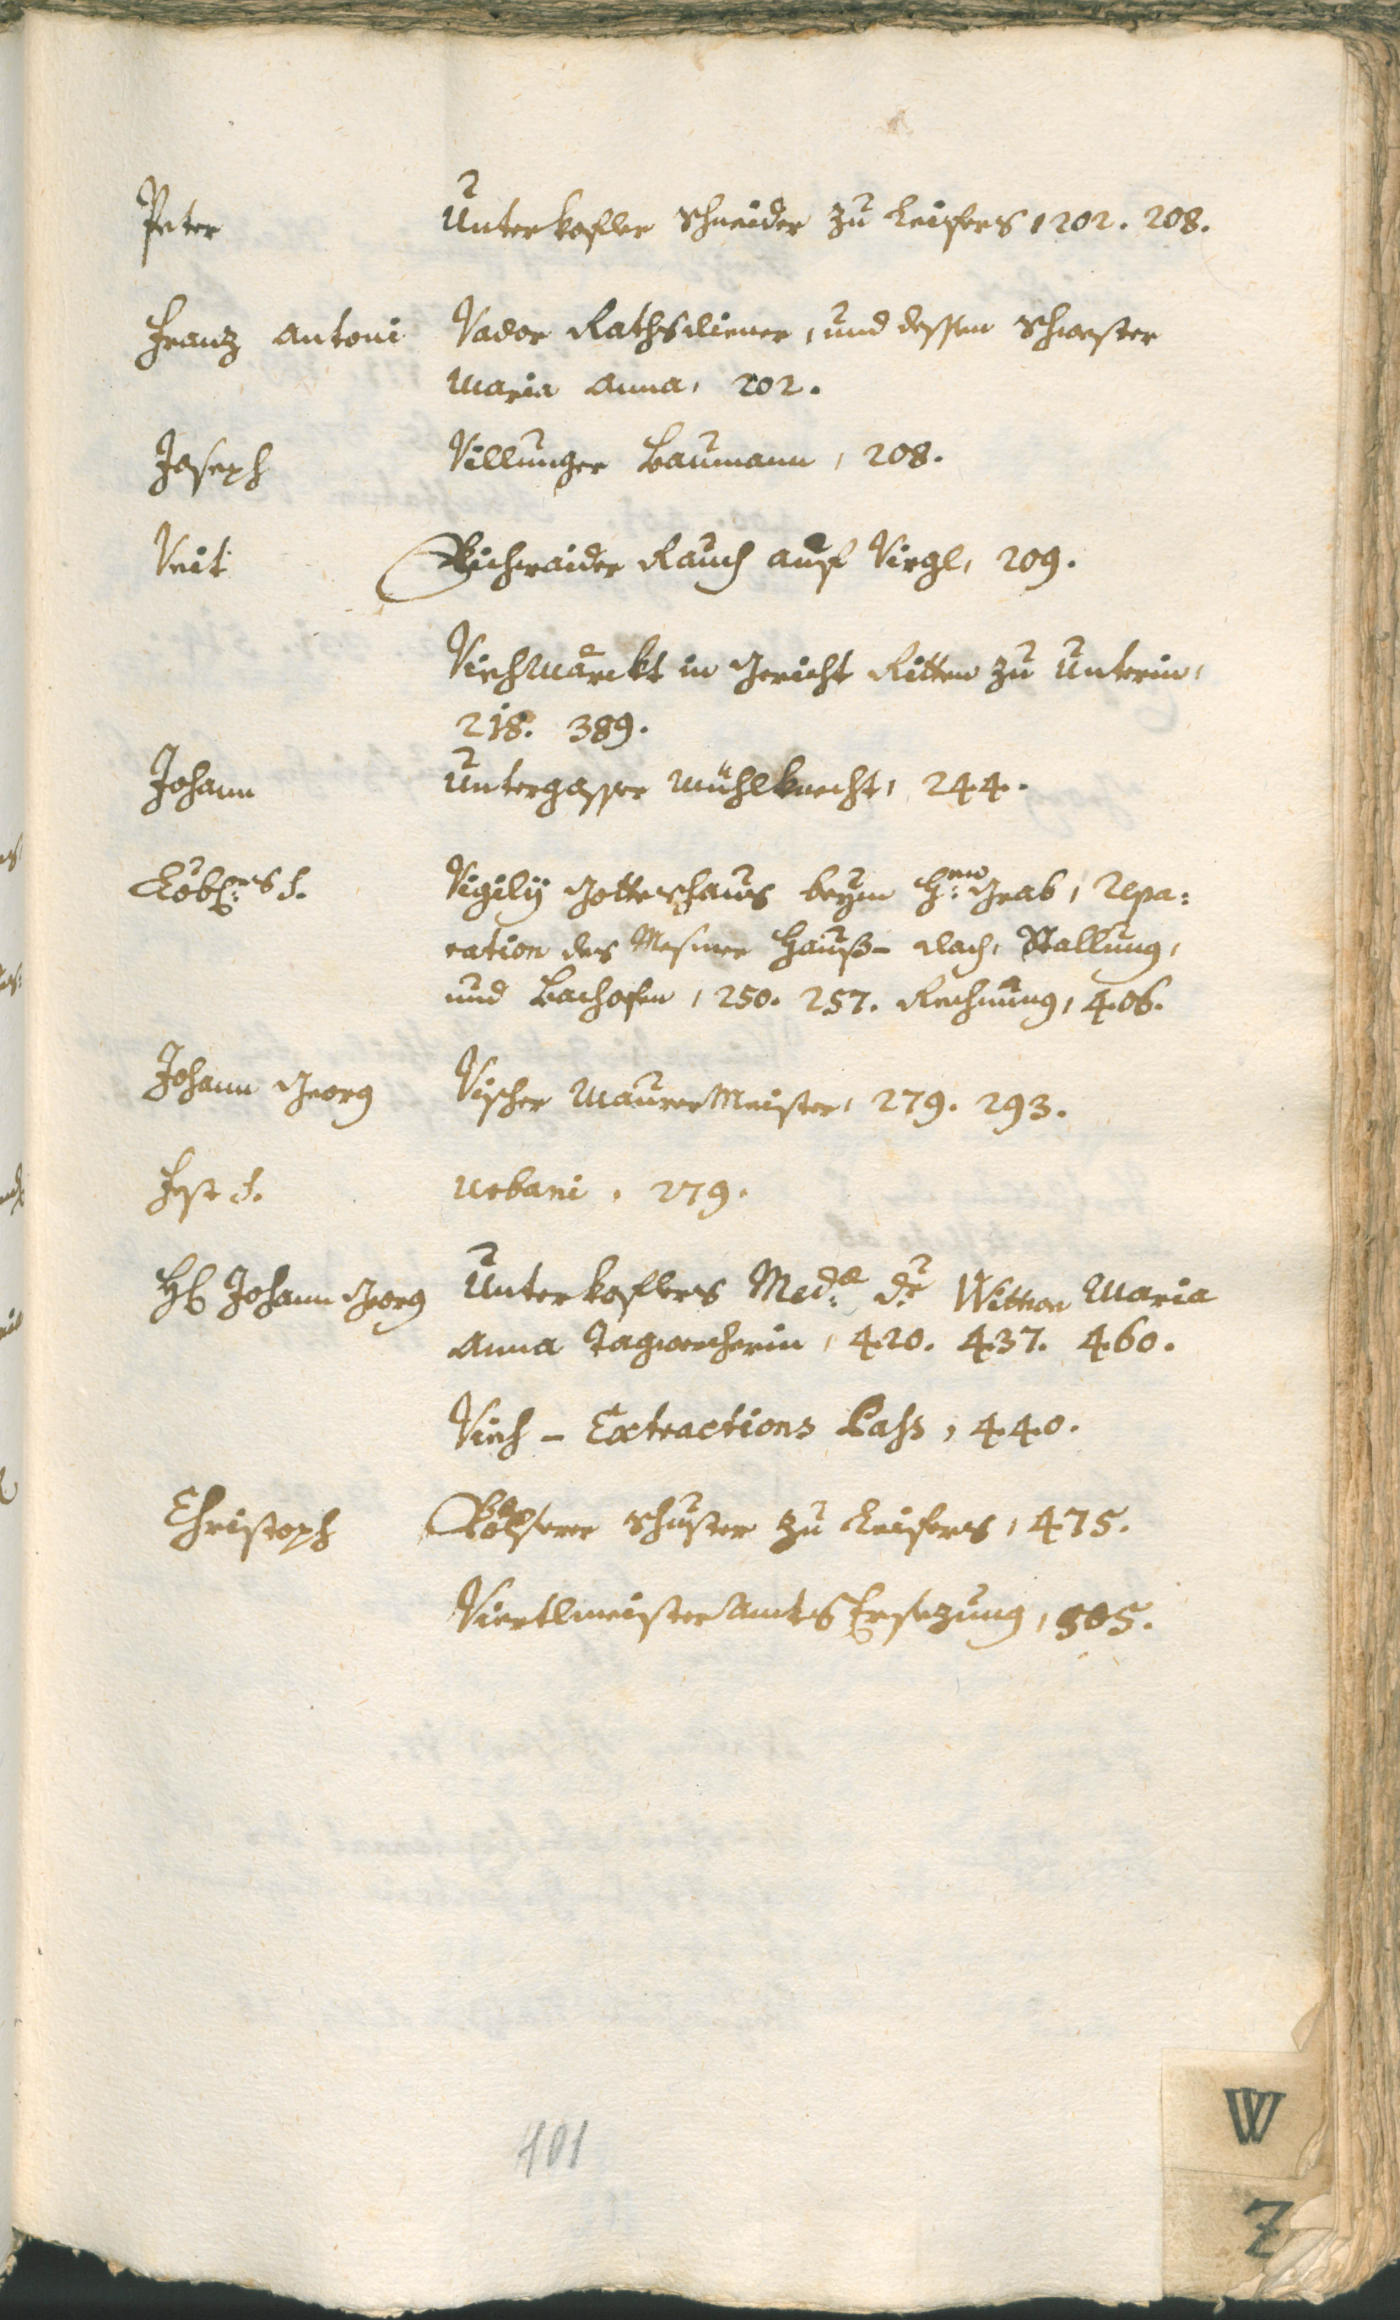 Peter Unterkofler Schneider zu Leifers, 202. 208.
Franz Antoni Vador Rathsdiener, und dessen Schwester
Maria Anna, 202.
Joseph Villunger Baumann, 208.
Veit Vichwaider Rauch auf Virgl, 209.
Viehmärckt in Gericht Ritten zu Unterin,
218. 389.
Johann Untergasser Mühlknecht, 244.
Löbl: S. Vigilÿ Gotteshaus beym H: Grab, Repa:
ration des Mesner Hauß- dach, Stallung,
und Bachofen, 250. 257. Rechnung, 406.
Johann Georg Vischer MaurerMeister, 279. 293.
Fest S. Urbani. 279.
H Johann Georg Unterkoflers Med: D: Wittwe Maria
Anna Tagwercherin, 420. 437. 460.
Vieh - Extractions Pass, 440.
Christoph Schuster zu Leifers, 475.
ViertlmeisterAmtsErsezung, 505.
401
W
Z